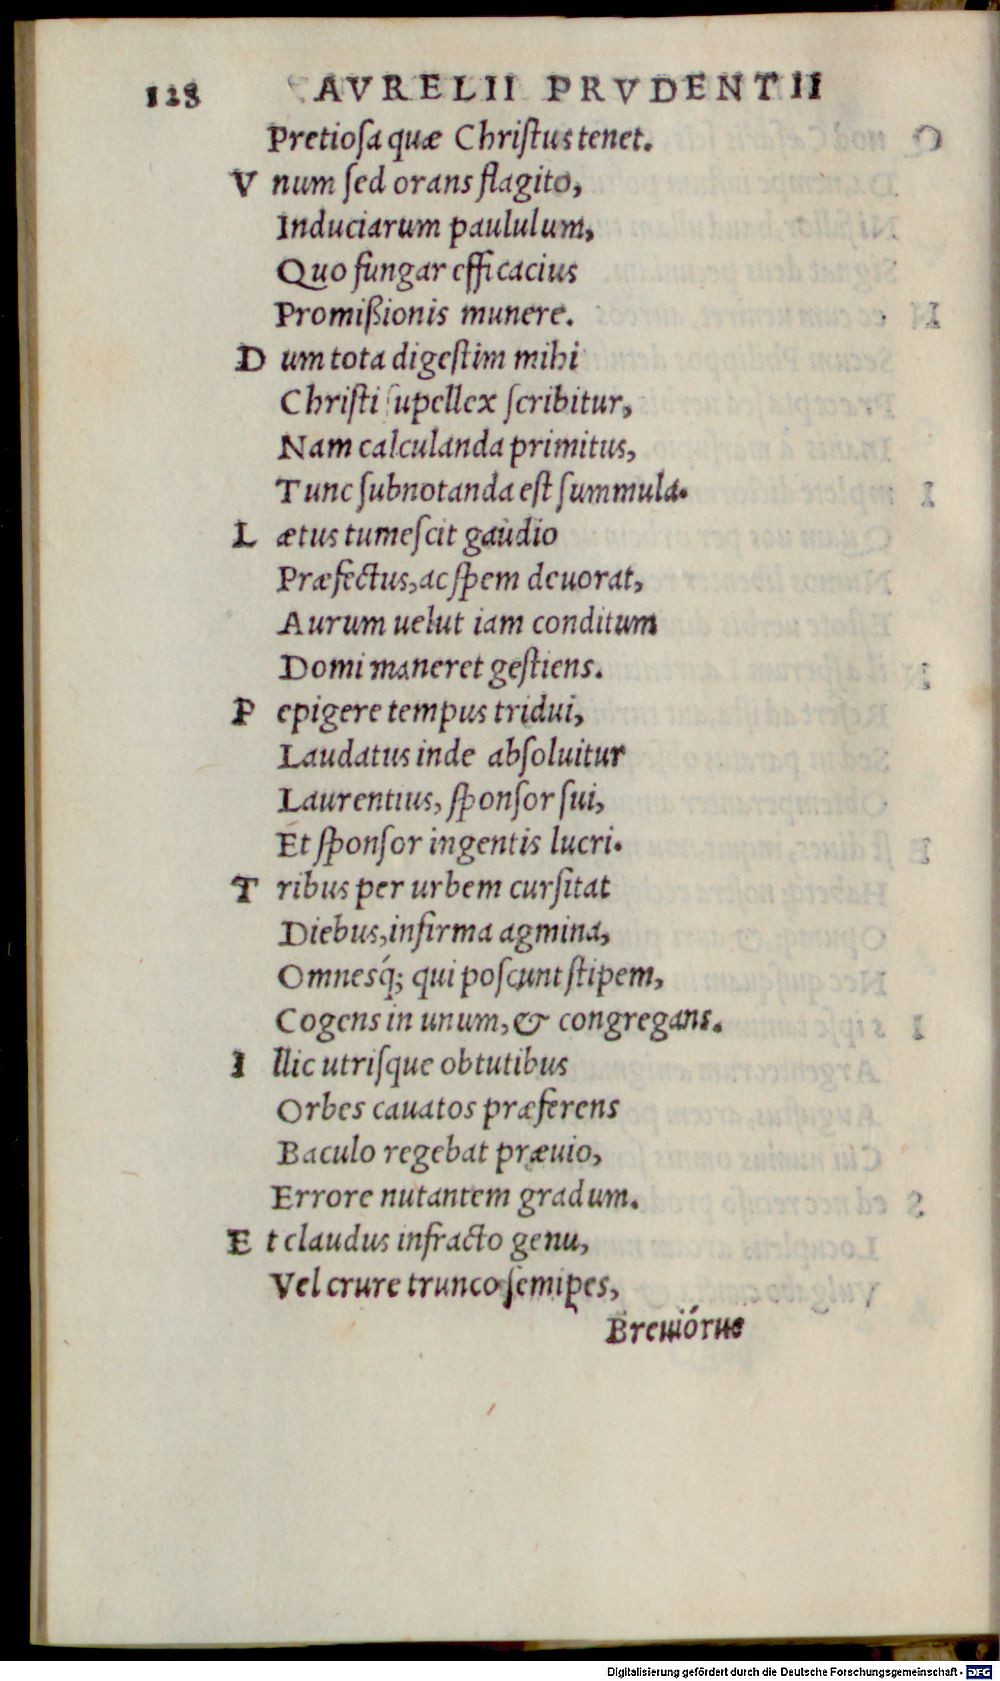 128 AVRELII PRVDENTII
Pretioſa quæ Chriſtus tenet.
V num ſed orans flagito,
Induciarum paululum,
Quo fungar efficacius
Promißionis munere.
D um tota digeſtim mihi
Chriſti ſupellex ſcribitur,
Nam calculanda primitus,
Tunc ſubnotanda eſt ſummula.
L ætus tumeſcit gaudio
Præfectus, ac ſpem deuorat,
Aurum uelut iam conditum
Domi maneret geſtiens.
P epigere tempus tridui,
Laudatus inde abſoluitur
Laurentius, ſponſor ſui,
Et ſponſor ingentis lucri.
T ribus per urbem curſitat
Diebus, infirma agmina,
Omnesq́; qui poſcunt ſtipem,
Cogens in unum, & congregans.
I llic utriſque obtutibus
Orbes cauatos præferens
Baculo regebat præuio,
Errore nutantem gradum.
E t claudus infracto genu,
Vel crure trunco ſemipes,
Breuiórue
Digitalisierung gefördert durch die Deutsche Forschungsgemeinschaft - DFG